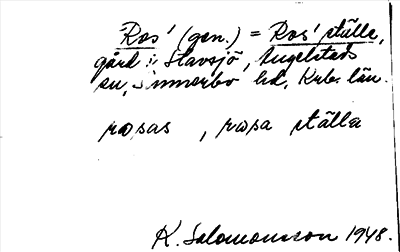 Ros' (gen.) = Ros' ställe,
gård i Slavsjö, Ängelstads
sn, Sunnerbo hd, Krb. län.
rosas , rosa ställa
K. Salomonsson 1948.